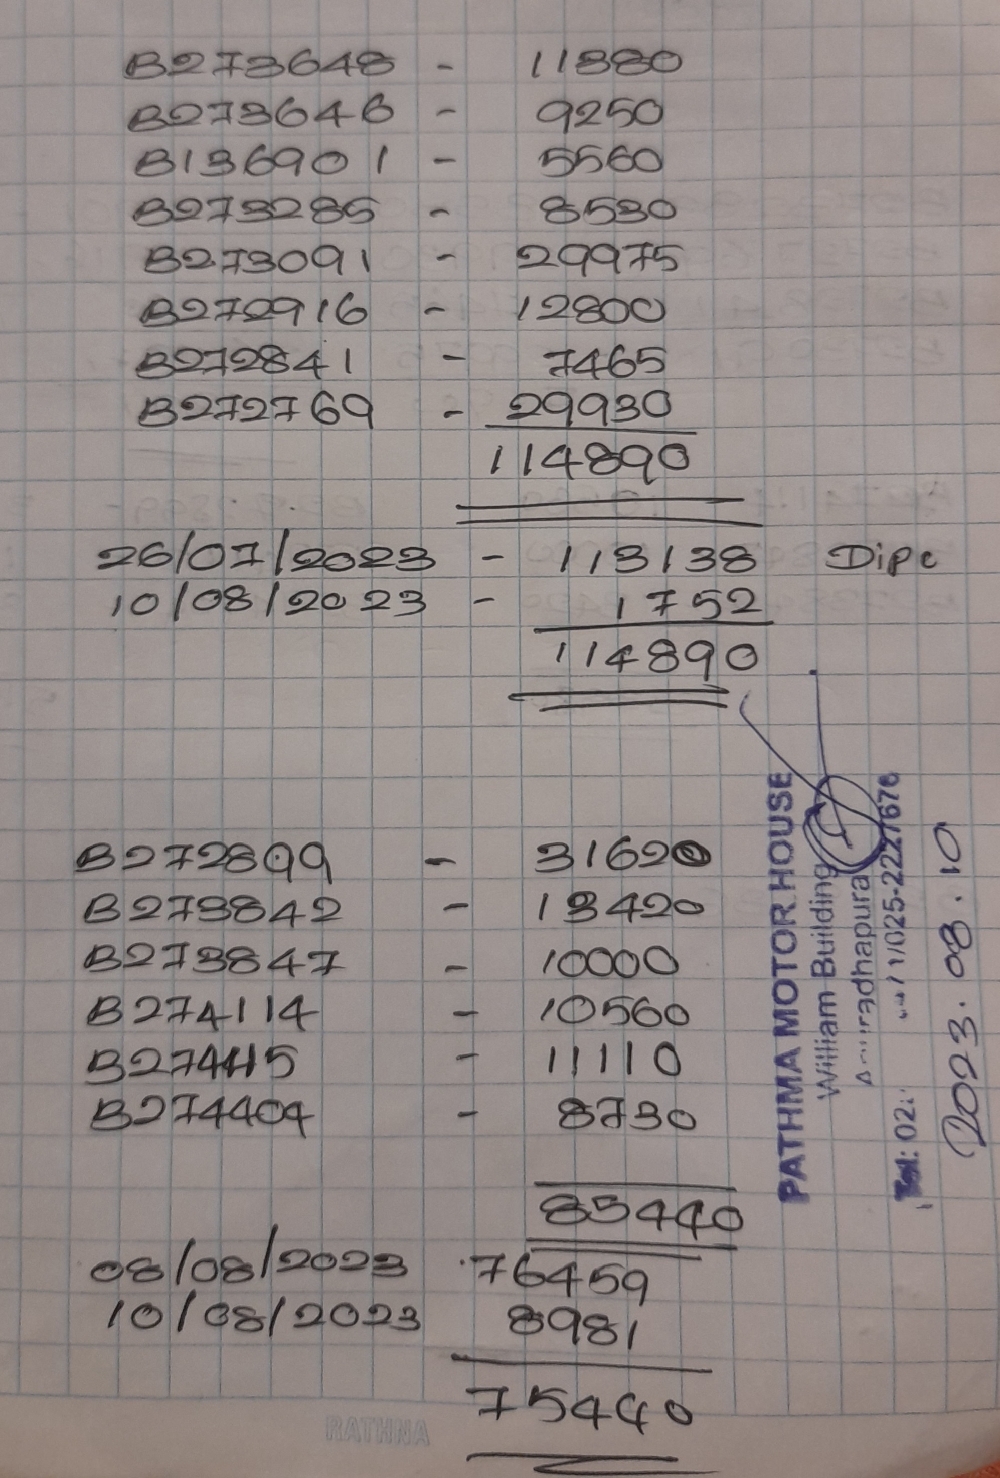 B273648 - 11880
B273646 - 9250
B136901 - 5560
B273285 - 8530
B273091 - 29975
B272916 - 12800
B272841 - 7465
B272769 - 29930
114890
26/07/2023 - 113138 Dipo
10/08/2023 - 1752
114890
B272899 - 31620
B273842 - 13420
B273847 - 10000
B274114 - 10560
B274115 - 11110
B274404 - 8730
85440
08/08/2023 76459
10/08/2023 8981
75440
PATHMA MOTOR HOUSE
William Building
Tel: 02 025-2227676
2023.08.10
RATHNA